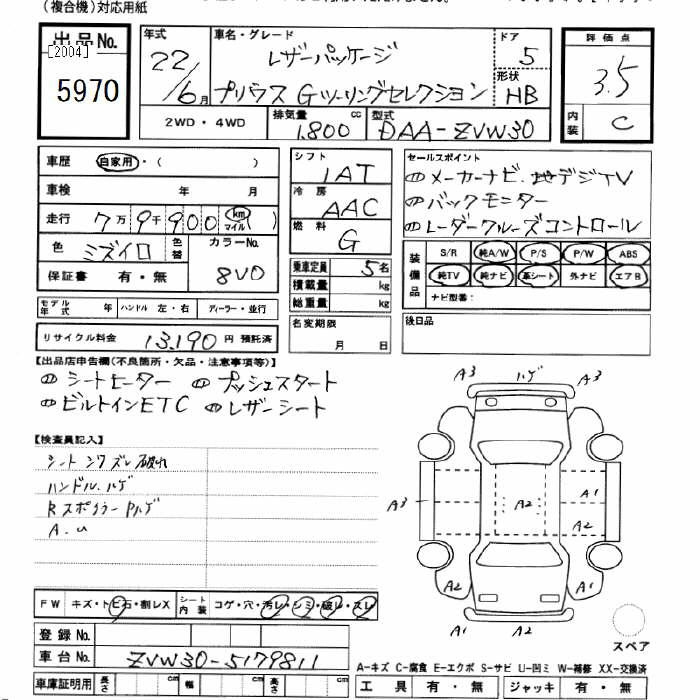 (複合機)対応用紙
出品No.
[2004]
5970
年式
22/6月
車名・グレード
レザーパッケージ
プリウス Gツーリングセレクション
ドア
5
形状
HB
評価点
3.5
内装
C
2WD・4WD
排気量
1.800 cc
型式
DAA-ZVW30
車歴 自家用・( )
車検 年 月
走行 7万9千900 (km マイル)
色 ミズイロ
色替
カラーNo.
8V0
保証書 有・無
シフト
IAT
冷房
AAC
燃料
G
乗車定員 5名
積載量 kg
総重量 kg
セールスポイント
メーカーナビ.地デジTV
バックモニター
レーダークルーズコントロール
装備品
S/R 純A/W P/S P/W ABS
純TV 純ナビ 革シート 外ナビ エアB
ナビ型番:
モデル年式 年 ハンドル 左・右 ディーラー・並行
リサイクル料金 13,190 円 預託済
名変期限
月 日
後日品
【出品店申告欄(不良箇所・欠品・注意事項等)】
シートヒーター プッシュスタート
ビルトインETC レザーシート
【検査員記入】
シート シワ スレ 破れ
ハンドル.ハゲ
Rスポイラー Pハゲ
A.U
A3 ハゲ A3
A3 A2 A1
A2
A2 A2
A1 A1
スペア
FW キズ・トビ石・割レX シート内装 コゲ・穴・汚レ・シミ・破レ・スレ
登録No.
車台No. ZVW30-5179811
A-キズ C-腐食 E-エクボ S-サビ U-凹ミ W-補修 XX-交換済
車庫証明用 長さ cm 幅 cm 高さ cm
工具 有・無 ジャッキ 有・無